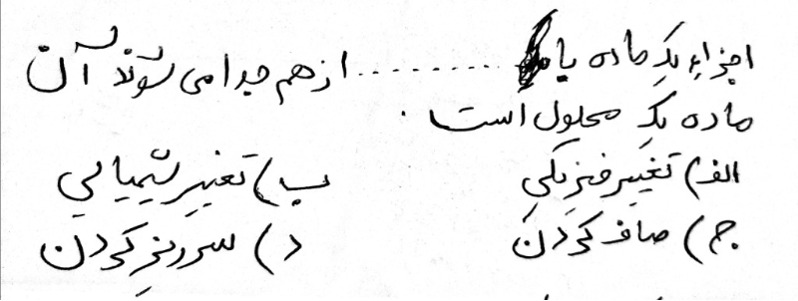 اجزاء یک ماده با .......... از هم جدا می شوند آن
ماده یک محلول است .
الف) تغییر فیزیکی ب) تغییر شیمیایی
ج) صاف کردن د) سرریز کردن